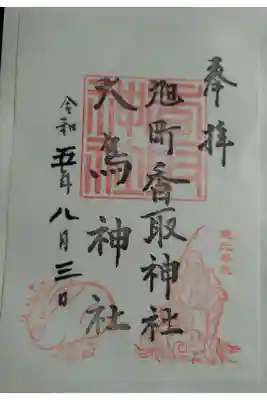 奉拝
旭町香取神社
大鳥神社
令和五年八月三日